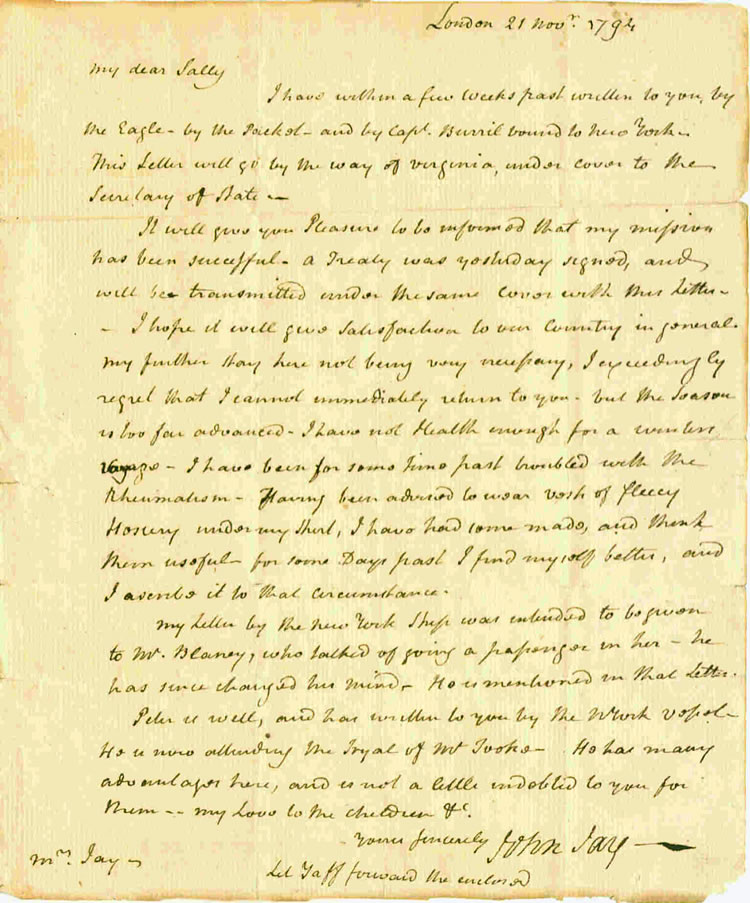 London 21 Novr. 1794
my dear Sally
I have within a few weeks past written to you, by
the Eagle - by the Packet - and by Capt. Burril bound to New York -
This Letter will go by the way of Virginia, under cover to the
Secretary of State -
It will give you Pleasure to be informed that my mission
has been successful - a Treaty was yesterday signed, and
will be transmitted under the same cover with this Letter -
- I hope it will give Satisfaction to our Country in general.
my further stay here not being very necessary, I exceedingly
regret that I cannot immediately return to you - but the Season
is too far advanced - I have not Health enough for a winters
voyage - I have been for some time past troubled with the
Rheumatism - Having been advised to wear vests of fleecy
Hosiery under my Shirt, I have had some made, and think
them useful - for some Days past I find myself better, and
I ascribe it to that circumstance.
my Letter by the new York Ship was intended to be given
to Mr. Blaney, who talked of going a passenger in her - he
has since changed his mind - He is mentioned in that Letter.
Peter is well, and has written to you by the NYork vessel -
He is now attending the Tryal of Mr Tooke - He has many
advantages here, and is not a little indebted to you for
them -- my Love to the children &c.
yours sincerely John Jay -
Mrs. Jay -
Let Taff forward the enclosed